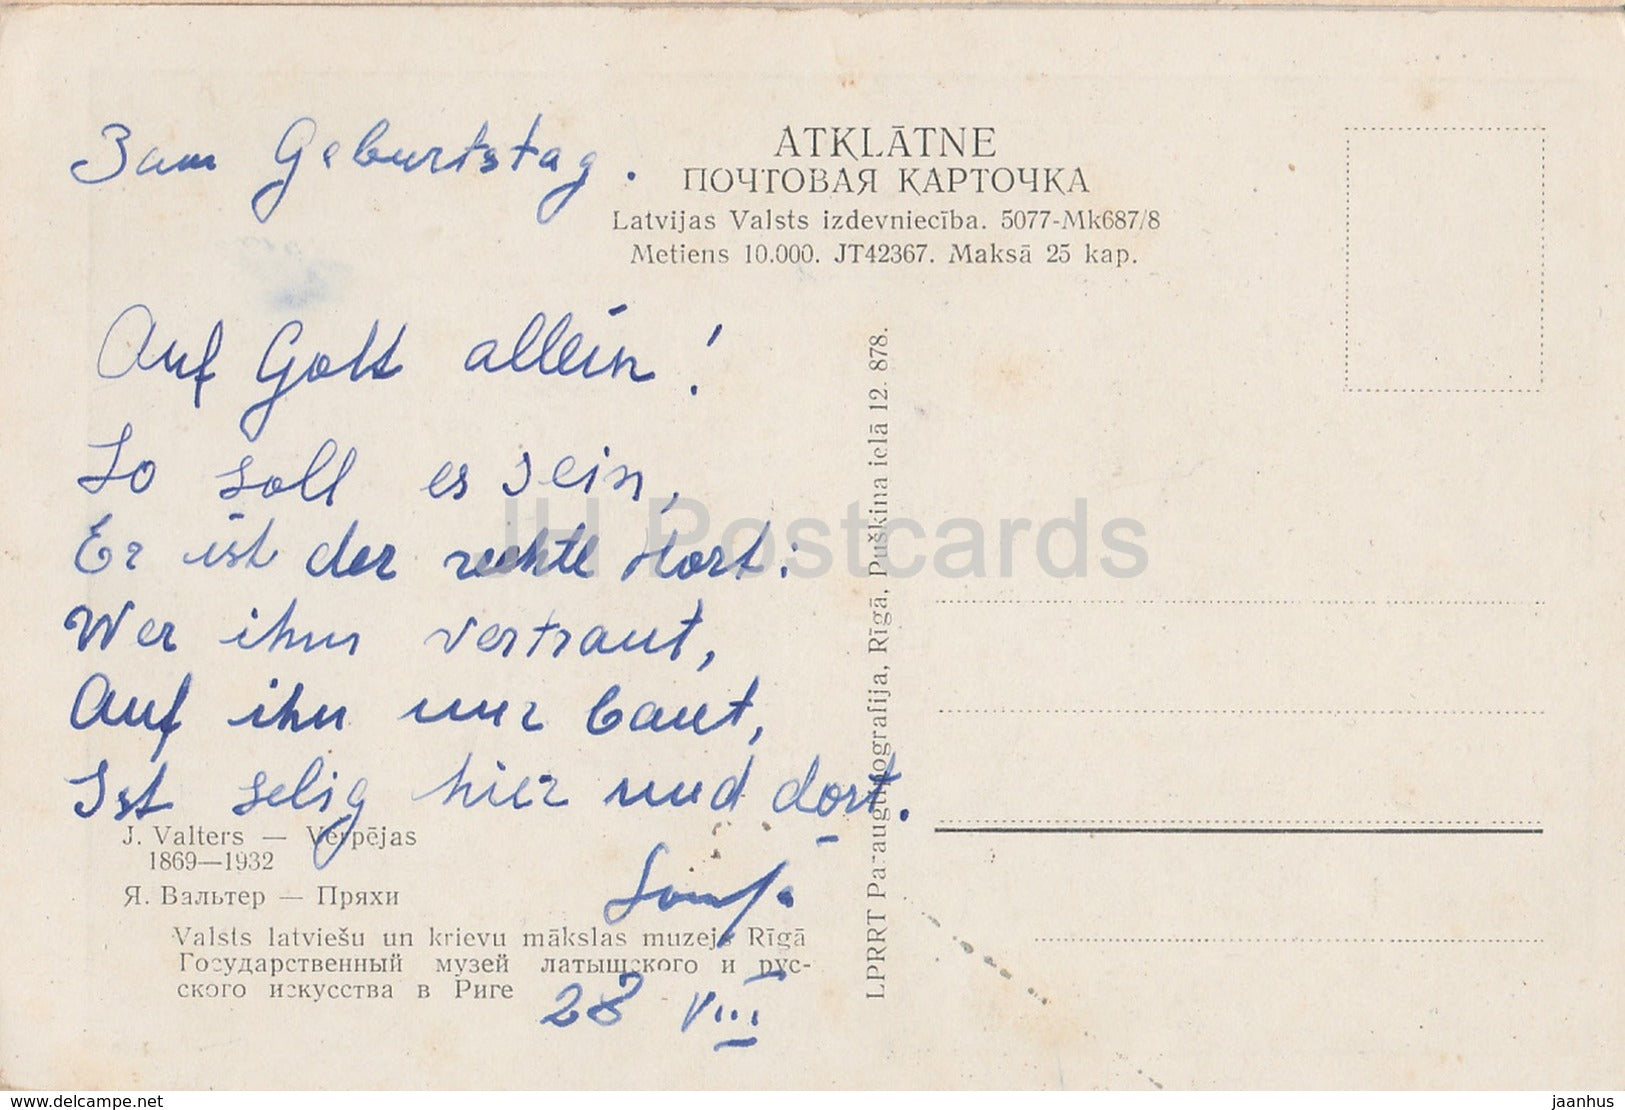 Zum Geburtstag.
ATKLĀTNE
ПОЧТОВАЯ КАРТОЧКА
Latvijas Valsts izdevniecība. 5077-Mk687/8
Metiens 10.000. JT42367. Maksā 25 kap.
Auf Gott allein!
So soll es sein,
Er ist der rechte Hort:
Wer ihm vertraut,
Auf ihn nur baut,
Ist selig hier und dort.
J. Valters — Vērpējas
1869—1932
Я. Вальтер — Пряхи
Valsts latviešu un krievu mākslas muzejs Rīgā
Государственный музей латышского и рус-
ского искусства в Риге
28 VIII
LPRRT Paraugtipografija, Rīgā, Puškina ielā 12. 878.
JH Postcards
delcampe.net
jaanhus